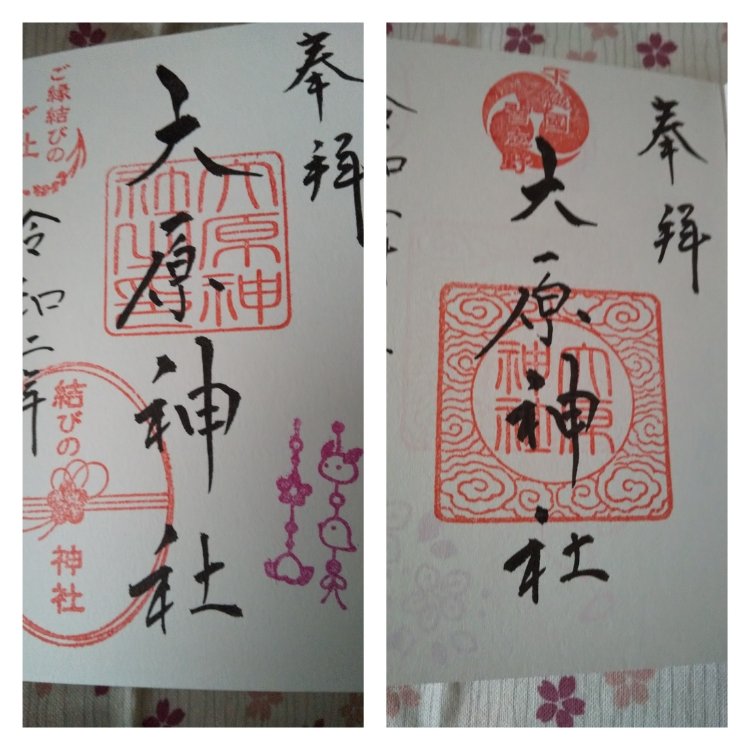 奉拝
大原神社
大原神
社之印
ご縁結びの
社
令和二年
結びの
神社
奉拝
大原神社
下総國
大原
神社
令和